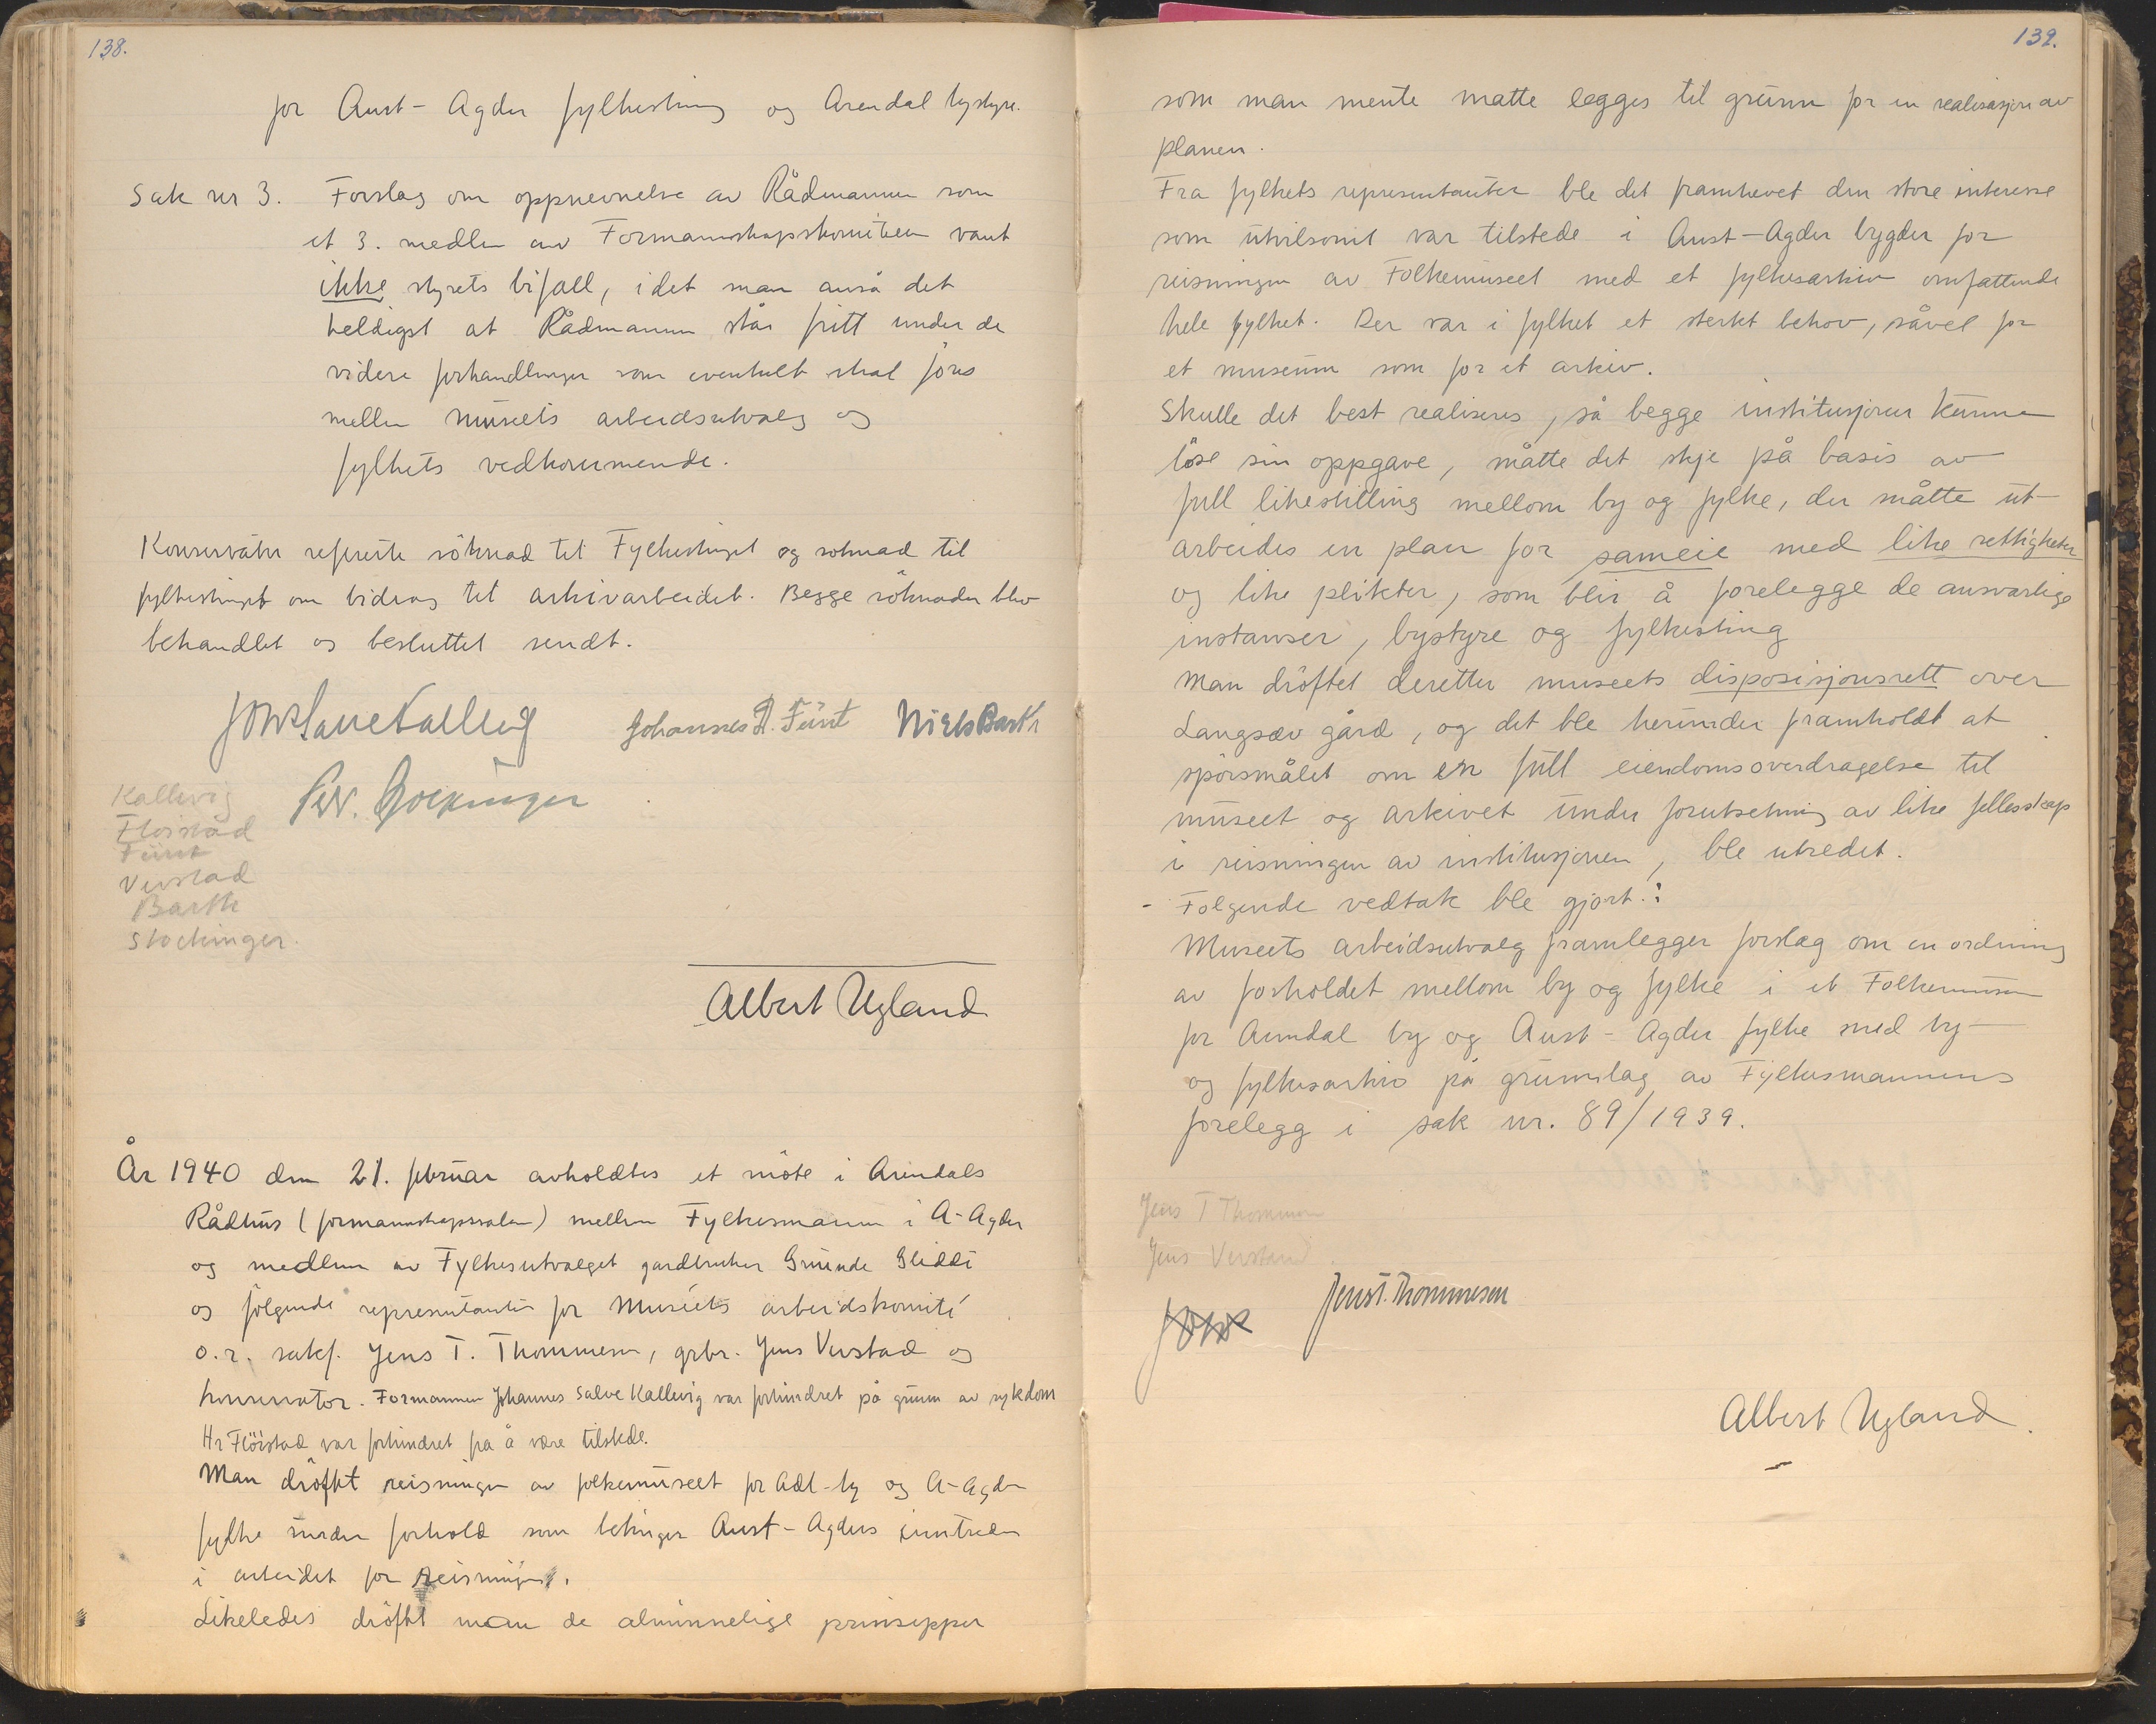 138.
for Aust-Agder fylkesting og Arendal bystyre.
Sak nr 3. Forslag om oppnevnelse av Rådmannen som
et 3. medlem av Formannskapskomiteen vant
ikke styrets bifall, idet man anså det
heldigst at Rådmannen står fritt under de
videre forhandlinger som eventuelt skal föres
mellem museets arbeidsutvalg og
fylkets vedkommende.
Konservator refererte söknad til Fylkestinget og söknad til
fylkestinget om bidrag til arkivarbeidet. Begge söknader blev
behandlet og besluttet sendt.
Johannes A. Fürst Niels Barth
Kallevig
Flöistad
Fürst
Verstad
Barth
Stockinger.
Albert Ugland
År 1940 den 21. februar avholdtes et möte i Arendals
Rådhus (formannskapssalen) mellem Fylkesmannen i A-Agder
og medlem av Fylkesutvalget gardbruker Gunde Sliddi
og fölgende representanter for Museets arbeidskomité
o.r. sakf. Jens T. Thommesen, grbr. Jens Verstad og
konservator. Formannen Johannes Salve Kallevig var forhindret på grunn av sykdom
Hr Flöistad var forhindret fra å være tilstede.
Man dröftet reisningen av folkemuseet for Adl-by og A-Agder
fylke under forhold som betinger Aust-Agders inntreden
i arbeidet for reisningen.
Likeledes dröftet man de alminnelige prinsipper
139.
som man mente måtte legges til grunn for en realisasjon av
planen.
Fra fylkets representanter ble det framhevet den store interesse
som utvilsomt var tilstede i Aust-Agder bygder for
reisningen av Folkemuseet med et fylkesarkiv omfattende
hele fylket. Der var i fylket et sterkt behov, såvel for
et museum som for et arkiv.
Skulle det best realiseres, så begge institusjoner kunne
löse sin oppgave, måtte det skje på basis av
full likestilling mellom by og fylke, der måtte ut-
arbeides en plan for sameie med like rettigheter
og like plikter, som blir å forelegge de ansvarlige
instanser, bystyre og fylkesting
Man dröftet deretter museets disposisjonsrett over
Langsæv gård, og det ble herunder framholdt at
spörsmålet om en full eiendomsoverdragelse til
museet og arkivet under forutsetning av like fellesskap
i reisningen av institusjonen, ble utredet.
- Fölgende vedtak ble gjort.:
Museets arbeidsutvalg framlegger forslag om en ordning
av forholdet mellom by og fylke i et Folkemuseum
for Arendal by og Aust-Agder fylke med by-
og fylkesarkiv på grunnlag av Fylkesmannens
forelegg i sak nr. 89/1939.
Jens T Thommesen
Jens Verstad
Jens T. Thommesen
Albert Ugland